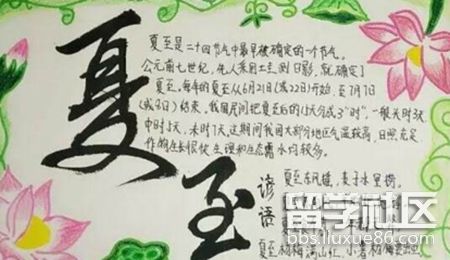 夏至
夏至是二十四节气中最早被确定的一个节气。
公元前七世纪,先人采用土圭测日影,就确定了
夏至。每年的夏至从6月21日(或22日)开始,至7月7日
(或8日)结束,我国民间把夏至后的15天分成3"时",一般头时3天,
中时5天,末时7天,这期间我国大部分地区气温较高,日照充足,
作物生长很快,生理和生态需水均较多。
谚语
夏至东风摇,麦子水里捞。
留学社区
bbs.liuxue86.com
夏至杨梅满山红,小暑杨梅